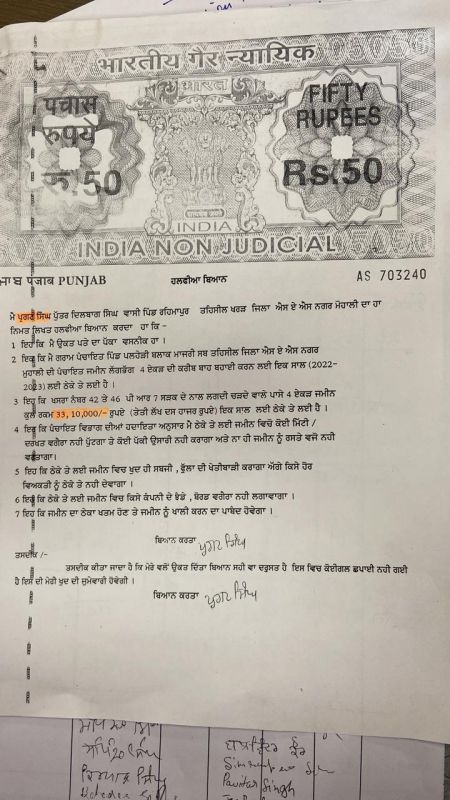 भारतीय गैर न्यायिक
भारत
पचास
रुपये
रु.50
FIFTY
RUPEES
Rs.50
सत्यमेव जयते
INDIA
INDIA NON JUDICIAL
ਪੰਜਾਬ पंजाब PUNJAB
ਹਲਫੀਆ ਬਿਆਨ
AS 703240
ਮੈ ਪ੍ਰਗਟ ਸਿੰਘ ਪੁੱਤਰ ਦਿਲਬਾਗ ਸਿੰਘ ਵਾਸੀ ਪਿੰਡ ਰਹਿਮਾਪੁਰ ਤਹਿਸੀਲ ਖਰੜ ਜਿਲਾ ਐਸ ਏ ਐਸ ਨਗਰ ਮੋਹਾਲੀ ਦਾ ਹਾ
ਨਿਮਤ ਲਿਖਤ ਹਲਫੀਆ ਬਿਆਨ ਕਰਦਾ ਹਾ ਕਿ -
1 ਇਹ ਕਿ ਮੈ ਉਕਤ ਪਤੇ ਦਾ ਪੱਕਾ ਵਸਨੀਕ ਹਾ ।
2 ਇਕ ਕਿ ਮੈ ਗਰਾਮ ਪੰਚਾਇਤ ਪਿੰਡ ਪਲਹੇੜੀ ਬਲਾਕ ਮਾਜਰੀ ਸਬ ਤਹਿਸੀਲ ਜਿਲਾ ਐਸ ਏ ਐਸ ਨਗਰ
ਮੁਹਾਲੀ ਦੀ ਪੰਚਾਇਤ ਜਮੀਨ ਲੱਗਭੱਗ 4 ਏਕੜ ਦੀ ਕਰੀਬ ਬਾਹ ਬਹਾਈ ਕਰਨ ਲਈ ਇਕ ਸਾਲ (2022-
2023) ਲਈ ਠੇਕੇ ਤੇ ਲਈ ਹੈ ।
3 ਇਹ ਕਿ ਖਸਰਾ ਨੰਬਰ 42 ਤੋ 46 ਪੀ ਆਰ 7 ਸੜਕ ਦੇ ਨਾਲ ਲਗਦੀ ਚੜਦੇ ਵਾਲੇ ਪਾਸੇ 4 ਏਕੜ ਜਮੀਨ
ਕੁਲ ਰਕਮ 33,10,000/- ਰੁਪਏ (ਤੇਤੀ ਲੱਖ ਦਸ ਹਾਜਰ ਰੁਪਏ) ਇਕ ਸਾਲ ਲਈ ਠੇਕੇ ਤੇ ਲਈ ਹੈ ।
4 ਇਹ ਕਿ ਪੰਚਾਇਤ ਵਿਭਾਗ ਦੀਆਂ ਹਦਾਇਤਾ ਅਨੁਸਾਰ ਮੈ ਠੇਕੇ ਤੇ ਲਈ ਜਮੀਨ ਵਿਚ ਕੋਈ ਮਿੱਟੀ /
ਦਰਖਤ ਵਗੈਰਾ ਨਹੀ ਪੁੱਟਗਾ ਤੇ ਕੋਈ ਪੱਕੀ ਉਸਾਰੀ ਨਹੀ ਕਰਾਗਾ ਅਤੇ ਨਾ ਹੀ ਜਮੀਨ ਨੂੰ ਰਸਤੇ ਵਜੋ ਨਹੀ
ਵਰਤਾਗਾ।
5 ਇਹ ਕਿ ਠੇਕੇ ਤੇ ਲਈ ਜਮੀਨ ਵਿਚ ਖੁਦ ਹੀ ਸਬਜੀ , ਫੁੱਲਾ ਦੀ ਖੇਤੀਬਾੜੀ ਕਰਾਗਾ ਅੱਗੇ ਕਿਸੇ ਹੋਰ
ਵਿਅਕਤੀ ਨੂੰ ਠੇਕੇ ਤੇ ਨਹੀ ਦੇਵਾਗਾ ।
6 ਇਹ ਕਿ ਠੇਕੇ ਤੇ ਲਈ ਜਮੀਨ ਵਿਚ ਕਿਸੇ ਕੰਪਨੀ ਦੇ ਝੰਡੇ , ਬੋਰਡ ਵਗੈਰਾ ਨਹੀ ਲਗਾਵਾਗਾ ।
7 ਇਹ ਕਿ ਜਮੀਨ ਦਾ ਠੇਕਾ ਖਤਮ ਹੋਣ ਤੇ ਜਮੀਨ ਨੂੰ ਖਾਲੀ ਕਰਨ ਦਾ ਪਾਬੰਦ ਹੋਵੇਗਾ ।
ਬਿਆਨ ਕਰਤਾ ਪ੍ਰਗਟ ਸਿੰਘ
ਤਸਦੀਕ /-
ਤਸਦੀਕ ਕੀਤਾ ਜਾਦਾ ਹੈ ਕਿ ਮੇਰੇ ਵਲੋ ਉਕਤ ਦਿੱਤਾ ਬਿਆਨ ਸਹੀ ਵਾ ਦਰੁਸਤ ਹੈ ਇਸ ਵਿਚ ਕੋਈਗਲ ਛਪਾਈ ਨਹੀ ਗਈ
ਹੈ ਇਸ ਦੀ ਮੇਰੀ ਖੁਦ ਦੀ ਜੁਮੇਵਾਰੀ ਹੋਵੇਗੀ ।
ਬਿਆਨ ਕਰਤਾ ਪ੍ਰਗਟ ਸਿੰਘ
Pavitar Singh